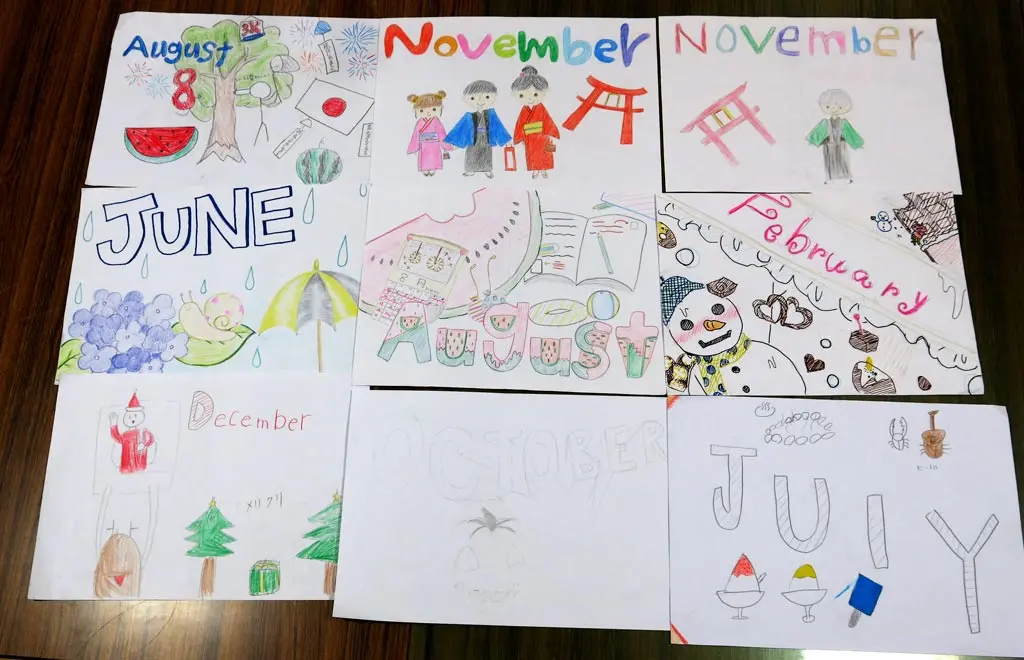 August
8
November
November
JUNE
August
February
December
メリクリ
OCTOBER
JUlY